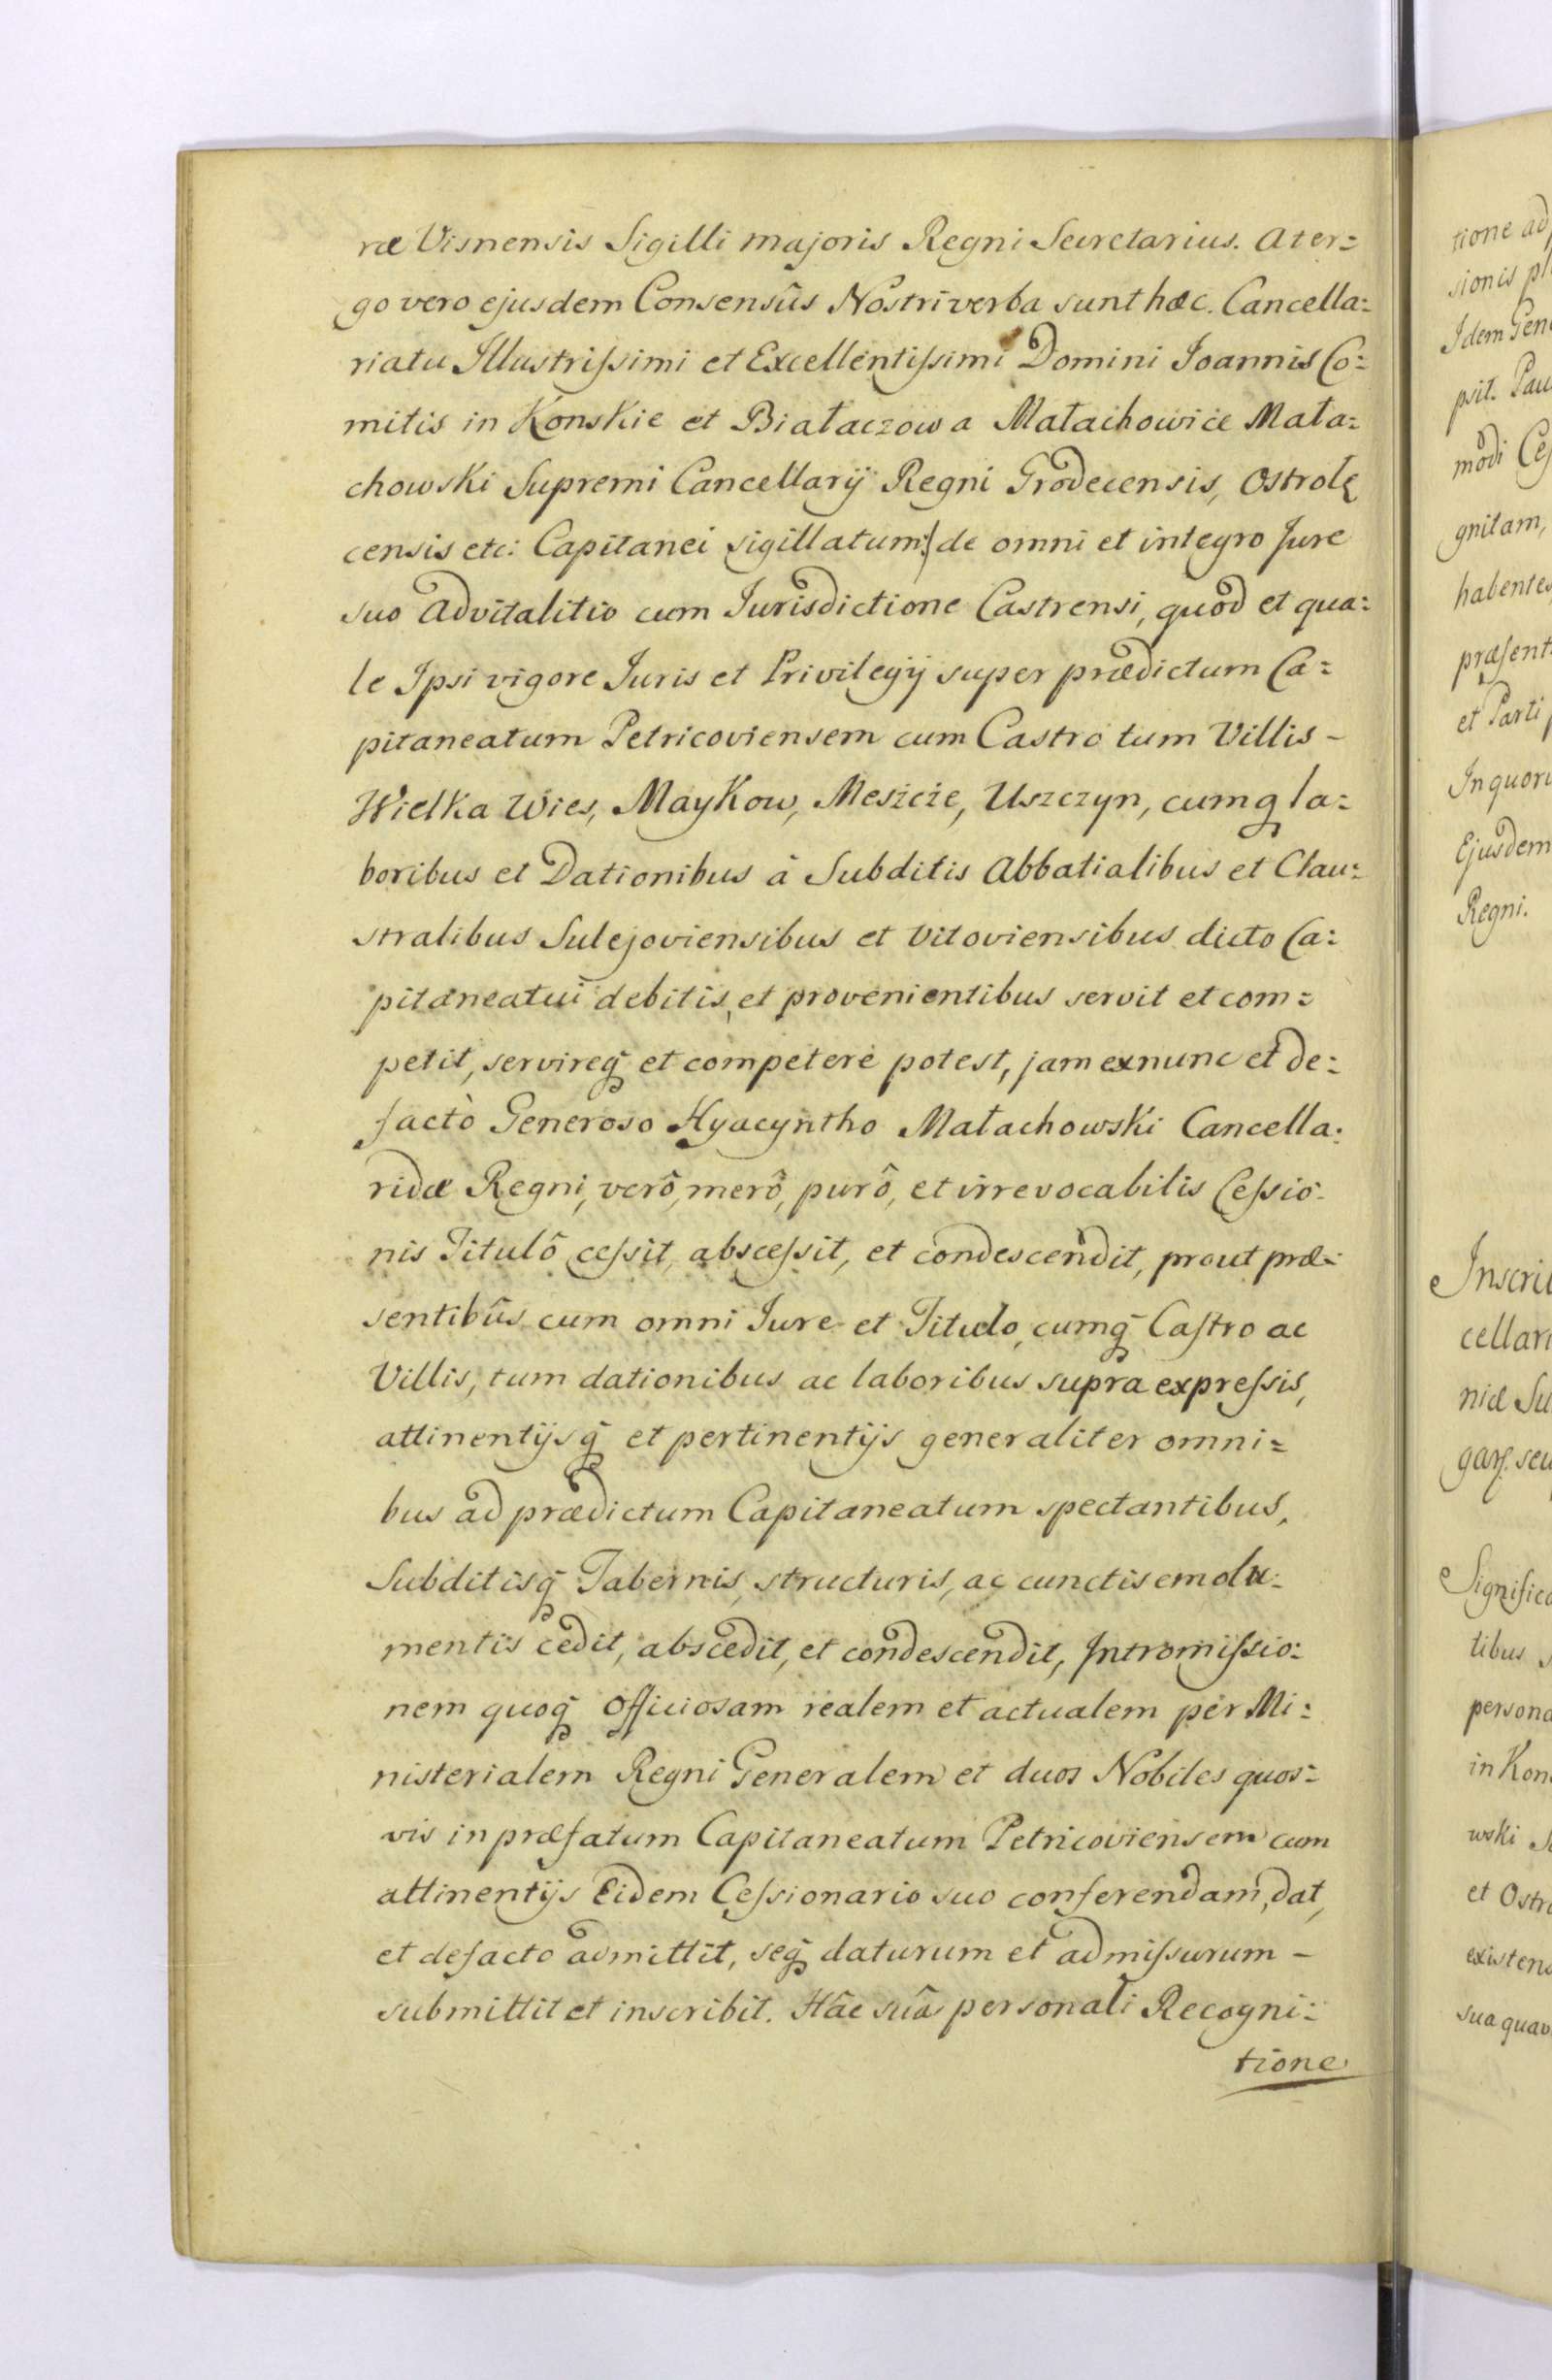 ræ Visnensis Sigilli majoris Regni Secretarius. A ter=
go vero ejusdem Consensûs Nostri verba sunt hæc. Cancella=
riatu Illustrissimi et Excellentissimi Domini Joannis Co=
mitis in Konskie et Białaczowa Małachowice Mała=
chowski Supremi Cancellarij Regni Grodecensis, Ostrolę
censis etc: Capitanei sigillatum:/ de omni et integro Jure
suo advitalitio cum Jurisdictione Castrensi, quod et qua=
le Ipsi vigore Juris et Privilegij super prædictum Ca=
pitaneatum Petricoviensem cum Castro tum Villis –
Wielka Wies, Maykow, Meszcze, Uszczyn, cumq̃ la=
boribus et Dationibus à Subditis Abbatialibus et Clau=
stralibus Sulejoviensibus et Vitoviensibus dicto Ca=
pitaneatui debitis, et provenientibus servit et com=
petit, servireq̃ et competere potest, jam ex nunc et de=
factò Generoso Hyacyntho Małachowski Cancella=
ridæ Regni, verô, merô, purô, et irrevocabilis Cessio=
nis Titulô cessit, abscessit, et condescendit, prout præ=
sentibûs cum omni Jure et Titulo, cumq̃ Castro ac
Villis, tum dationibus ac laboribus supra expressis,
attinentijsq̃ et pertinentijs generaliter omni=
bus ad prædictum Capitaneatum spectantibus,
Subditisq̃ Tabernis, structuris, ac cunctis emolu=
mentis cedit, abscedit, et condescendit, Intromissio=
nem quoq̃ officiosam realem et actualem per Mi=
nisterialem Regni Generalem et duos Nobiles quos=
vis in præfatum Capitaneatum Petricoviensem cum
attinentijs Eidem Cessionario suo conferendam, dat,
et defacto admittit, seq̃ daturum et admissurum –
submittit et inscribit. Hâc suâ personali Recogni=
tione
tione ad
sionis
Idem Gen
psit.
modi
gnitam,
habentes
præsent
et Parti
In quor
Ejusdem
Regni.
Inscri
cellar
niæ
seu
Signific
tibus
persona
in Kon
wski
et Ostro
existen
sua quav